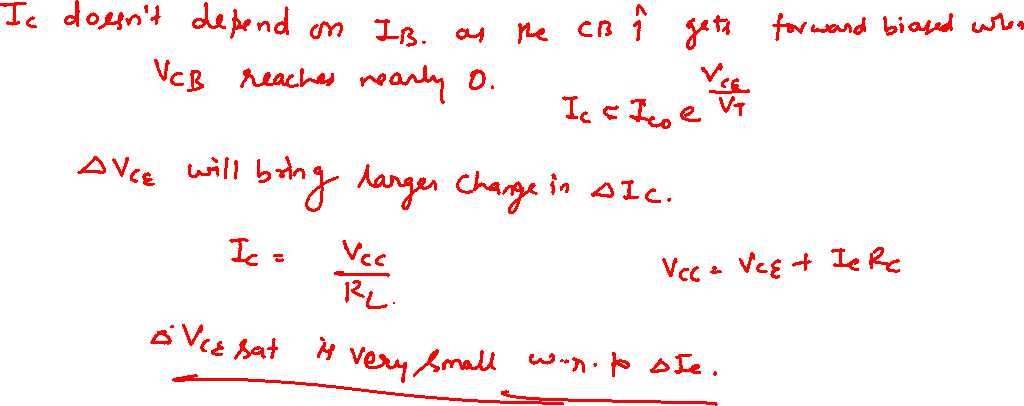 Ic doesn't depend on IB. as the CB ↑ gets forward biased when
VCB reaches nearly 0.
Ic = Ico e^(VCE/VT)
ΔVCE will bring larger change in ΔIc.
Ic = VCC/RL. VCC = VCE + Ic Rc
ΔVCE sat is very small w.r. to ΔIc.